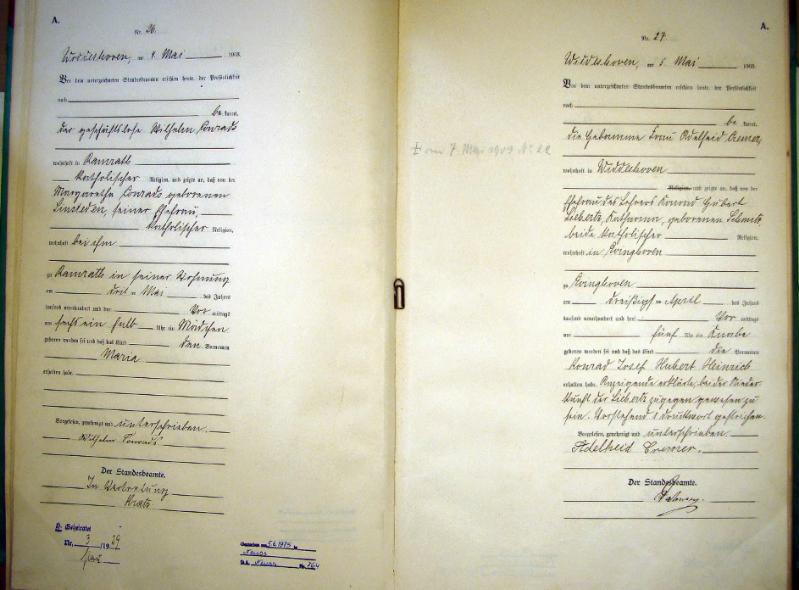 A.
Nr. 26.
am 4. Mai 1903.
Vor dem unterzeichneten Standesbeamten erschien heute, der Persönlichkeit
nach
be kannt,
der geschäftslose Wilhelm Conrads
wohnhaft in Ramrath
katholischer Religion, und zeigte an, daß von der
Margaretha Conrads geborenen
Linsteden, seiner Ehefrau,
katholischer Religion,
wohnhaft bei ihm
zu Ramrath in seiner Wohnung
am drei ten Mai des Jahres
tausend neunhundert und drei Vor mittags
um sechs ein halb Uhr ein Mädchen
geboren worden sei und daß das Kind den Vornamen
Maria
erhalten habe.
Vorgelesen, genehmigt und unterschrieben.
Wilhelm Conrads
Der Standesbeamte.
In Vertretung
Geheiratet
Nr. 3 /19 29
5.6.1975
Neuss
Neuss Nr. 764
A.
Nr. 27.
am 5. Mai 1903.
Vor dem unterzeichneten Standesbeamten erschien heute, der Persönlichkeit
nach
be kannt,
die Hebamme Frau Adelheid Cremer,
wohnhaft in
Religion, und zeigte an, daß von der
Ehefrau des Lehrers Konrad Hubert
Lieberts, Katharina, geborenen Schmitz,
beide katholischer Religion,
wohnhaft in Evinghoven
zu Evinghoven
am dreißigsten April des Jahres
tausend neunhundert und drei Vor mittags
um fünf Uhr ein Knabe
geboren worden sei und daß das Kind die Vornamen
Konrad Josef Hubert Heinrich
erhalten habe. Anzeigende erklärte, bei der Nieder-
kunft der Lieberts zugegen gewesen zu
sein. Vorstehend 1 Druckwort gestrichen.
Vorgelesen, genehmigt und unterschrieben.
Adelheid Cremer.
Der Standesbeamte.
† am 7. Mai 1903 No 22